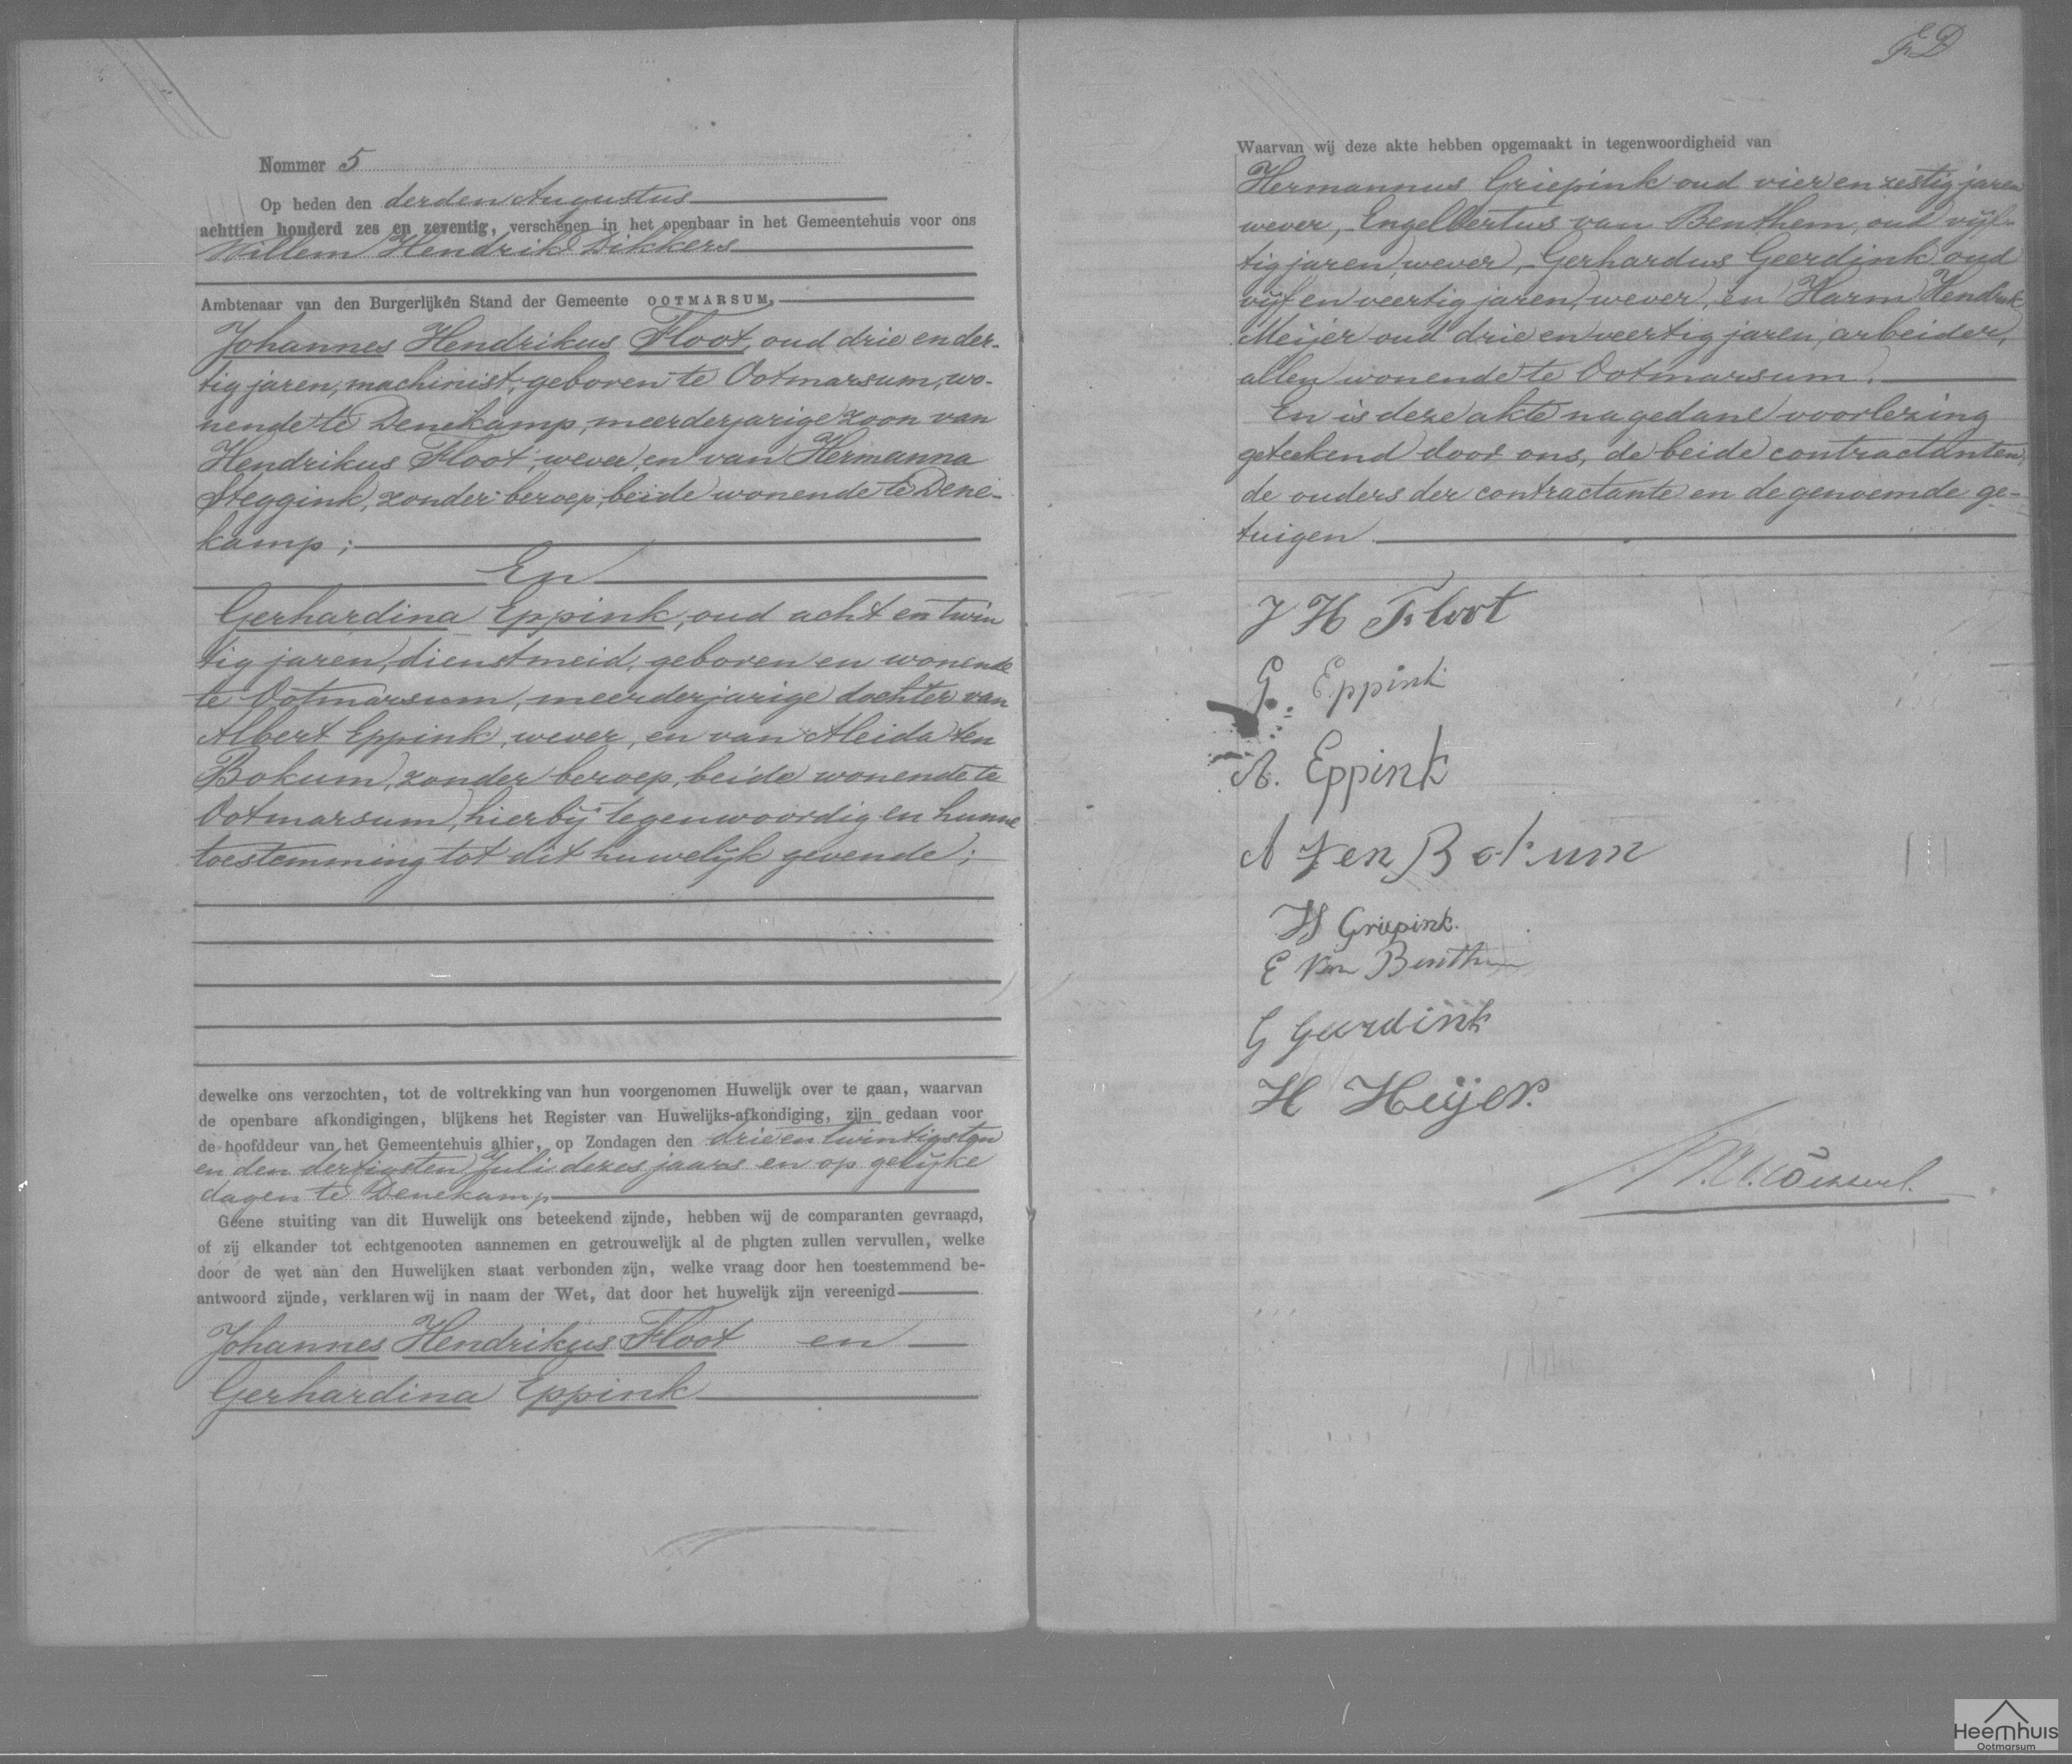 Nommer 5
Op heden den derden Augustus
achttien honderd zes en zeventig, verschenen in het openbaar in het Gemeentehuis voor ons
Willem Hendrik Dikkers
Ambtenaar van den Burgerlijken Stand der Gemeente OOTMARSUM,
Johannes Hendrikus Floot, oud drie en der-
tig jaren, machinist, geboren te Ootmarsum, wo-
nende te Denekamp, meerderjarige zoon van
Hendrikus Floot, wever, en van Hermanna
Steggink, zonder beroep, beide wonende te Dene-
kamp;
En
Gerhardina Eppink, oud acht en twin
tig jaren, dienstmeid, geboren en wonende
te Ootmarsum, meerderjarige dochter van
Albert Eppink, wever, en van Aleida ten
Bokum, zonder beroep, beide wonende te
Ootmarsum, hierbij tegenwoordig en hunne
toestemming tot dit huwelijk gevende;
dewelke ons verzochten, tot de voltrekking van hun voorgenomen Huwelijk over te gaan, waarvan
de openbare afkondigingen, blijkens het Register van Huwelijks-afkondiging, zijn gedaan voor
de hoofddeur van het Gemeentehuis alhier, op Zondagen den drie en twintigsten
en den dertigsten Juli dezes jaars en op gelijke
dagen te Denekamp
Geene stuiting van dit Huwelijk ons beteekend zijnde, hebben wij de comparanten gevraagd,
of zij elkander tot echtgenooten aannemen en getrouwelijk al de phgten zullen vervullen, welke
door de wet aan den Huwelijken staat verbonden zijn, welke vraag door hen toestemmend be-
antwoord zijnde, verklaren wij in naam der Wet, dat door het huwelijk zijn vereenigd
Johannes Hendrikus Floot en
Gerhardina Eppink
Waarvan wij deze akte hebben opgemaakt in tegenwoordigheid van
Hermannus Griepink oud vier en zestig jaren
wever, Engelbertus van Benthem, oud vijf-
tig jaren, wever, Gerhardus Geerdink oud
vijf en veertig jaren, wever, en Harm Hendrik
Meijer oud drie en veertig jaren, arbeider,
allen wonende te Ootmarsum.
En is deze akte na gedane voorlezing
geteekend door ons, de beide contractanten,
de ouders der contractante en de genoemde ge-
tuigen
J H Floot
G. Eppink
A. Eppink
A ten Bokum
H Griepink.
E Van Benthem
G Geerdink
H Meijer.
Heemhuis
Ootmarsum